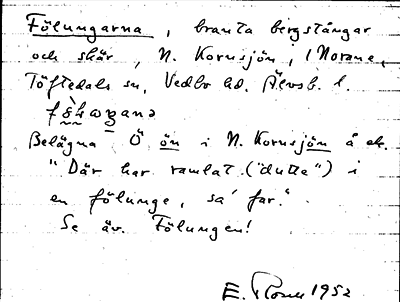 Fölungarna, branta bergstängar
och skär, N. Kornsjön, i Norane,
Töftedals sn, Vedbo hd. Älvsb. l.
Belägna Ö ön i N. Kornsjön å ek.
"Där har ramlat ("dutta") i
en fölunge, sa' far."
Se äv. Fölungen!
E. 1952